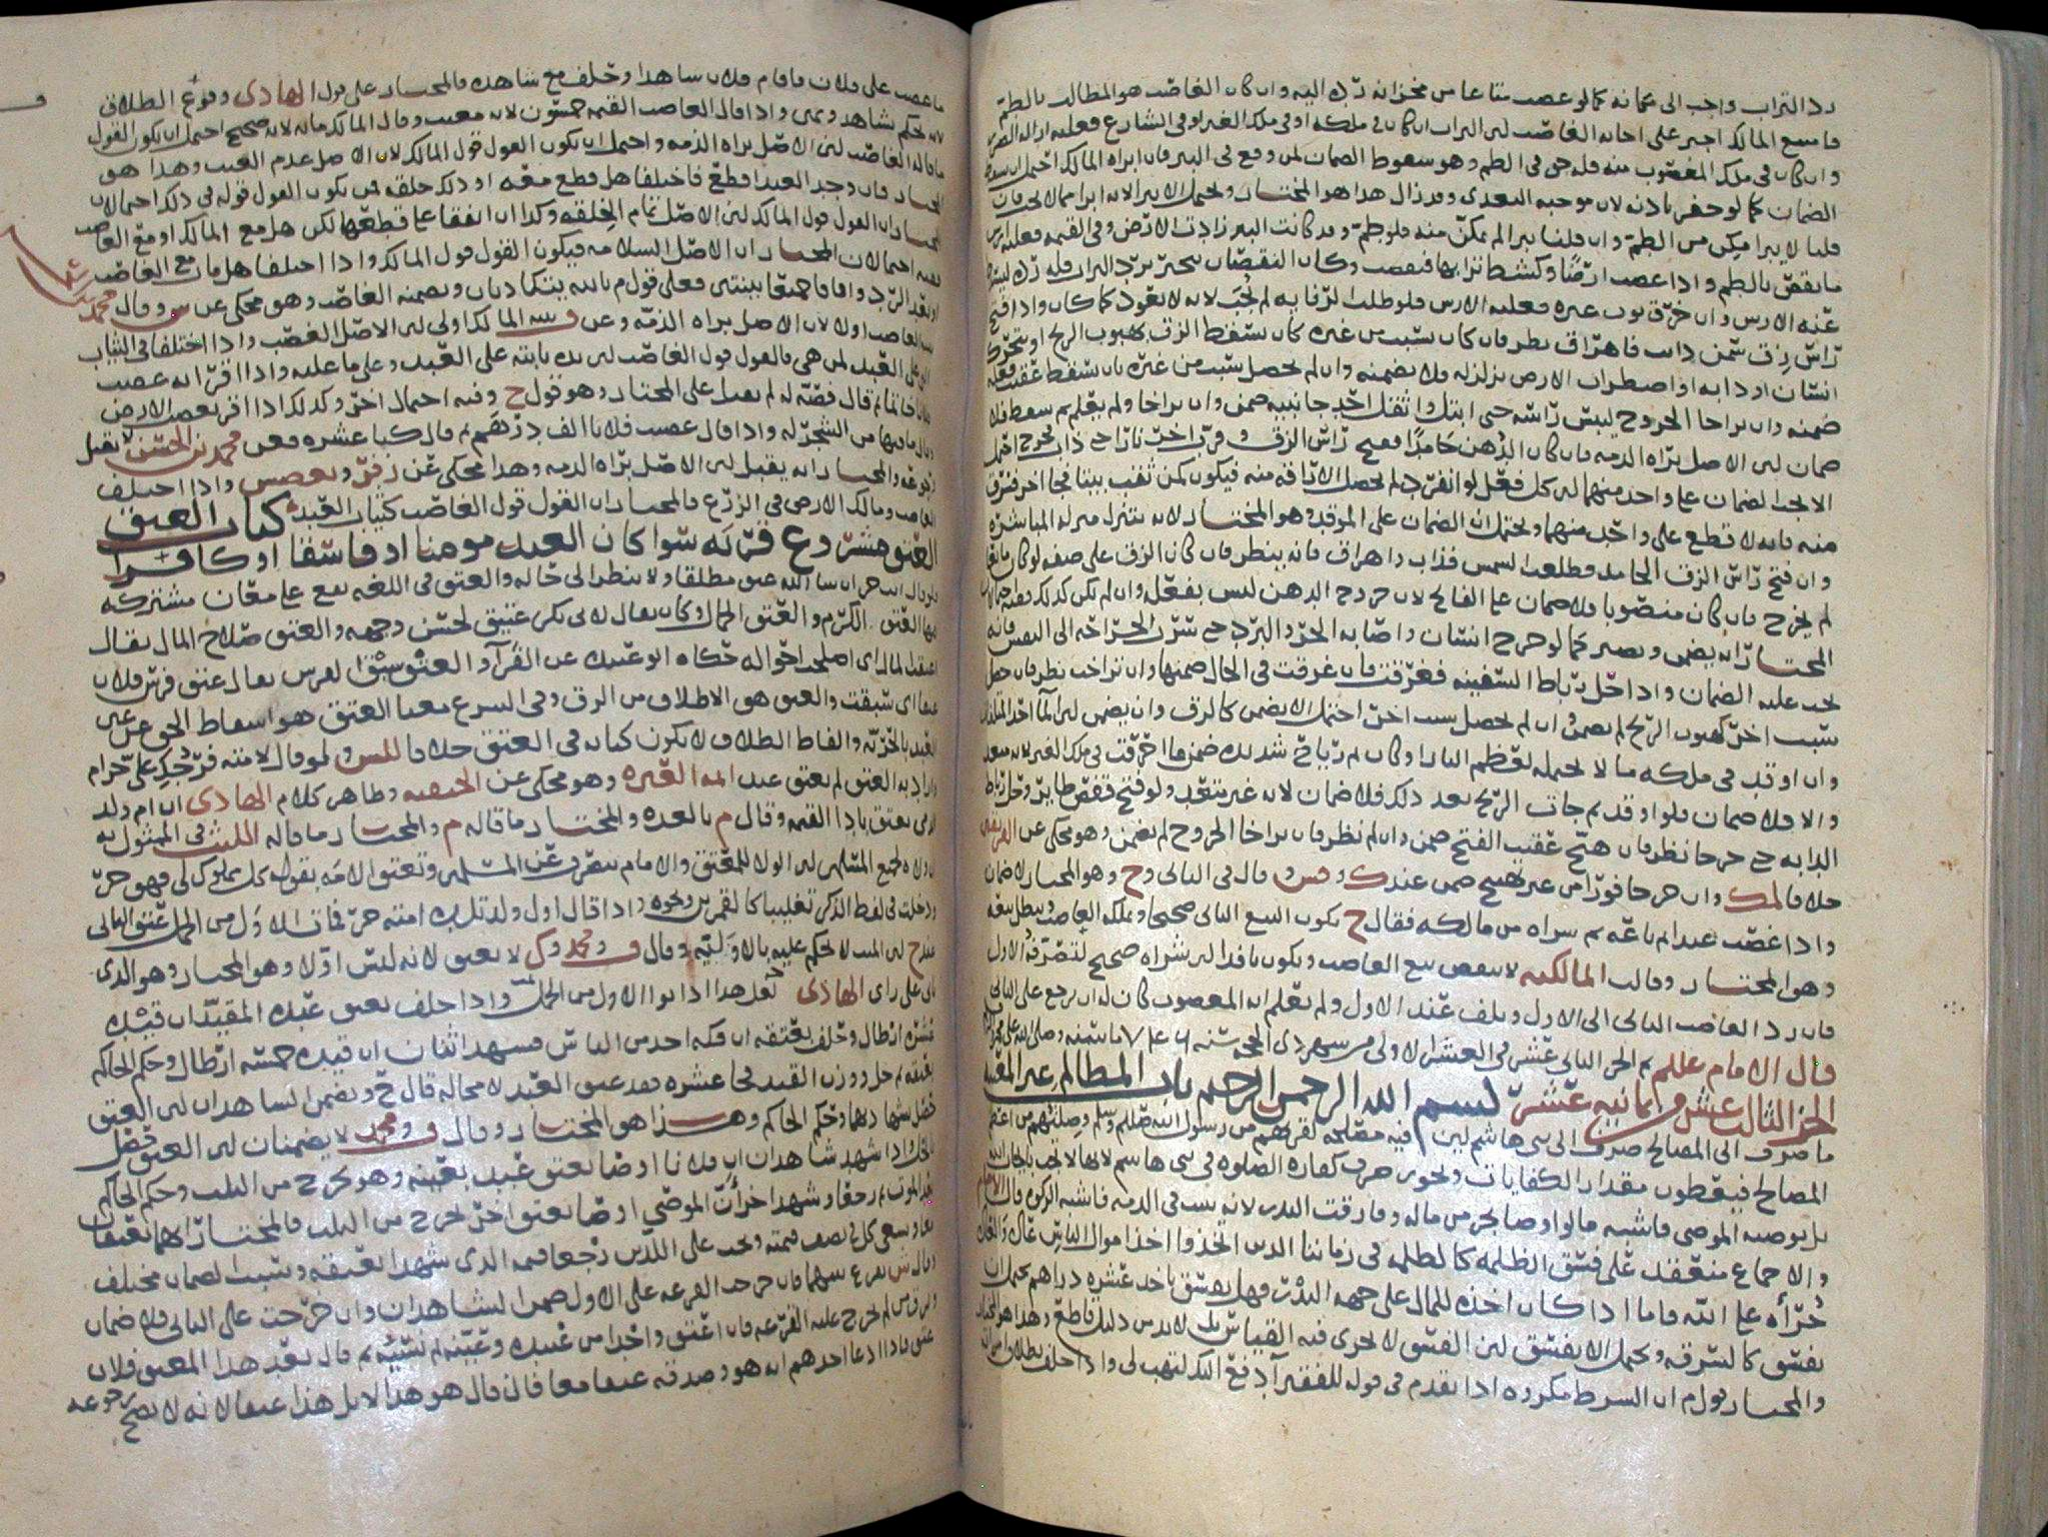 رد التراب واجب الى مكانه كما لو غصب متاعا من مخزانه رده اليه وان كان الغاصب هو المطالب بالطم
فامتنع المالك اجبر على اجابه الغاصب لان التراب ان كان في ملكه او في ملك الغير او في الشارع فعليه ازاله الضرر
وان كان في ملك المغصوب منه فله حق في الطم وهو سقوط الضمان لمن وقع في البير فان ابراه المالك احتمل ان يسقط
الضمان كما لو حفر باذنه لان موجبه التعدي وقد زال هذا هو المختار ويحتمل الا يبرا لانه ابرا مما لا يجب فان
قلنا لا يبرا مكن من الطم وان قلنا يبرا لم يمكن منه فلو طم وقد كانت البير زادت الارض في القيمه فعليه ارش
ما نقص بالطم واذا غصب ارضا وكشط ترابها فنقصت وكان النقصان ينجبر برد التراب فله رده ليندفع
عنه الارش وان خرق ثوب غيره فعليه الارش فلو طلب الرفا به لم يجب لانه لا يعود كما كان واذا فتح
راس زق سمن ذايب فاهراق نظر فان كان بسبب من غيره كان يسقط الزق بهبوب الريح او بتحريك
انسان او دابه او اضطراب الارض بزلزله فلا يضمنه وان لم يحصل بسبب من غيره بان يسقط عقيب فعله
ضمنه وان تراخا الخروج ليبس راسه حتى ابتل او ثقل احد جانبيه ضمن وان تراخا ولم يعلم بم سقط فلا
ضمان لان الاصل براه الذمه فان كان الدهن جامدا ففتح راس الزق وقرب اخر نارا حتى ذاب فخرج احتمل
الا يجب الضمان على واحد منهما لان كل فعل لو انفرد لم تحصل الاراقه منه فيكون كمن نقب بيتا فجا اخر فسرق
منه فانه لا قطع على واحد منهما ويحتمل ان الضمان على الموقد وهو المختار لانه يتنزل منزله المباشره
وان فتح راس الزق الجامد فطلعت الشمس فذاب واهراق فانه ينظر فان كان الزق على صفه لو كان مايعا
لم يخرج فان كان منصوبا فلا ضمان على الفاتح لان خروج الدهن ليس بفعله وان لم يكن كذلك ففيه احتمالان
المختار انه يضمن ويصير كما لو جرح انسان واصابه الحر والبرد حتى سرت الجراحه الى النفس فانه
يجب عليه الضمان واذا حل رباط السفينه فغرقت فان غرقت في الحال ضمنها وان تراخت نظر فان حصل
سبب اخر كهبوب الريح لم يضمن وان لم يحصل سبب اخر احتمل الا يضمن كالزق وان يضمن لان الماء احد المتلفات
وان اوقد في ملكه ما لا يحتمله لعظم النار او كان ثم رياح شديده ضمن ما احرقت في ملك الغير لانه متعد
والا فلا ضمان فلو اوقد ثم جات الريح بعد ذلك فلا ضمان لانه غير متعد ولو فتح قفص طاير وحل رباط
الدابه حتى خرجا نظر فان هيج عقيب الفتح ضمن وان لم نظر فان تراخا الخروج لم يضمن وهو محكي عن الفريقين
خلافا لمالك وان خرجا فورا من غير تهييج ضمن عند ك و قش و قال في الثاني و ح وهو المختار لا ضمان
واذا غصب عبدا ثم باعه ثم شراه من مالكه فقال ح يكون البيع الثاني صحيحا ويملكه الغاصب ويبطل بيعه
وهو المختار وقالت المالكيه لا ينقض بيع الغاصب ويكون نافذا لان شراه صحيح لتصرفه الاول
فان رد الغاصب الثاني الى الاول وتلف عند الاول ولم يعلم انه المغصوب كان له ان يرجع على الثاني
قال الامام عللم تم الجزء الثاني عشر في العشر الاولى من شهر ذي الحجه سنه
الجزء الثالث عشر من ثمانيه عشر بسم الله الرحمن الرحيم باب المظالم غير المعينه
ما صرف الى المصالح صرف الى بني هاشم لان فيه مصلحه لقربهم من رسول الله صللم وسلم وصلتهم من اعظم
المصالح فيعطون مقدار الكفايات ويجوز صرف كفاره الصلوه في بني هاشم لانها لا تجب بايجاب الله
بل بوصيه الموصي فاشبه ما لو اوصا بجزء من ماله وفارقت النذر لانه يثبت في الذمه فاشبه الزكوه قال الامام
والاجماع منعقد على فسق الظلمه كالظلمه في زماننا الذين اتخذوا اخذ اموال الناس عاده
جرأه على الله فاما اذا كان اخذه للمال على جهه الندرة فهل يفسق باخذ عشره دراهم يحتمل ان
يفسق كالسرقه ويحتمل الا يفسق لان الفسق لا يجري فيه القياس بل لا بد من دليل قاطع وهذا هو المختار
والمختار قول م ان الشرط مكروه اذا تقدم في قوله للفقير ادفع اليك لتهب لي واذا حلف بطلاق امراته
ما غصب على فلان فاقام فلان شاهدا وحلف مع شاهده فالمختار على قول الهادي وقوع الطلاق
لانه يحكم بشاهد ويمين واذا قال الغاصب القيمه خمسون لانه معيب وقال المالك مايه لانه صحيح احتمل ان يكون القول
ما قاله الغاصب لان الاصل براه الذمه واحتمل ان يكون القول قول المالك لان الاصل عدم العيب وهذا هو
المختار فان وجد العبد اقطع فاختلفا هل قطع معه او ذلك خلقه فمن يكون القول قوله في ذلك احتمالان
المختار ان القول قول المالك لان الاصل تمام الخلقه وكذا ان اتفقا على قطعها لكن هل مع المالك او مع الغاصب
ففيه احتمالان المختار ان الاصل السلامه فيكون القول قول المالك واذا اختلفا هل مات مع الغاصب
او بعد الرد واقاما جميعا بينتين فعلى قول م بالله يتكاذبان ويضمنه الغاصب وهو محكي عن س وقال محمد
بينه الغاصب اولا لان الاصل براه الذمه وعن ف بينه المالك اولى لان الاصل الغصب واذا اختلفا في الثياب
التي على العبد لمن هي فالقول قول الغاصب لان يده ثابته على العبد وعلى ما عليه واذا اقر انه غصب
خاتما ثم قال فصه له لم يقبل على المختار وهو قول ح وفيه احتمال اخر وكذلك اذا اقر بغصب الارض
وقال ما فيها من الشجر له واذا قال غصب فلانا الف درهم ثم قال كنا عشره فعن محمد بن الحسن لا يقبل
رجوعه والمختار انه يقبل لان الاصل براه الذمه وهذا محكي عن زفر وبعض ص واذا اختلف
الغاصب ومالك الارض في الزرع فالمختار ان القول قول الغاصب كثياب العبد كتاب العتق
العتق مشروع قربه سوا كان العبد مومنا او فاسقا او كافرا
فلو قال انت حر ان شا الله عتق مطلقا ولا ينظر الى حاله والعتق في اللغه يقع على معان مشتركه
فيها العتق الكرم والعتق الجمال وكان يقال لابي بكر عتيق لحسن وجهه والعتق صلاح المال يقال
عتقت المال اي اصلحت احواله حكاه ابو عبيد عن الفرآ والعتق سبق الفرس يقال عتق فرس فلان
عتقا اي سبقت والعتق هو الاطلاق من الرق وفي الشرع معنا العتق هو اسقاط الحق عن عين
العبد بالحريه والفاظ الطلاق لا يكون كنايه في العتق خلافا للش و لو قال لامته فرجك علي حرام
واراد به العتق لم يعتق عند ائمه العتره وهو محكي عن الحنفيه وظاهر كلام الهادي ان ام ولد
الذمي يعتق بادا القيمه وقال م بالعده والمختار ما قاله م والمختار ما قاله الليث في الممثول به
ان ولاه لجميع المسلمين لان الولا للمعتق والامام ينصرف عن المسلمين وتعتق الامه بقوله كل مملوك لي فهو حر
ودخلت في لفظ الذكر تغليبا كالقمرين ونحوه واذا قال اول ولد تلده امته حر فمات الاول من الحمل عتق الثاني
لان الميت لا يحكم عليه بالاوليه وقال ف ومحمد وك لا يعتق لانه ليس اولا وهو المختار وهو الذي
ياتي على راي الهادي لعل هذا اذا نوا الاول من الحمل واذا حلف بعتق عبده المقيد ان قيده
عشره ارطال وحلف بعتقه ان فكه احد من الناس فشهد اثنان ان قيده خمسه ارطال وحكم الحاكم
بعتقه ثم حل ووزن القيد فجا عشره فقد عتق العبد لا محاله قال ح ويضمن الشاهدان لان العتق
حصل بشهادتهما وحكم الحاكم وهذا هو المختار وقال ف ومحمد لا يضمنان لان العتق حصل
بالحل واذا شهد شاهدان ان فلانا اوصا بعتق عبد بعينه وهو يخرج من الثلث وحكم الحاكم
بعد الموت ثم رجعا وشهد اخران ان الموصي اوصا بعتق اخر يخرج من الثلث فالمختار انهما يعتقان
معا ويسعى كل في نصف قيمته ويجب على اللذين رجعا قيمه الذي شهدا بعتقه وسبب الضمان مختلف
وقال ش يقرع بينهما فان خرجت القرعه على الاول ضمن الشاهدان وان خرجت على الثاني فلا ضمان
ويرق من لم تخرج عليه القرعه فان اعتق واحدا من عبيده وعينه ثم نسيه ثم قال بعد هذا المعتق فلان
عتق فاذا ادعا احدهم انه هو وصدقه عتقا معا فان قال هو هذا لا بل هذا عتقا لانه لا يصح رجوعه